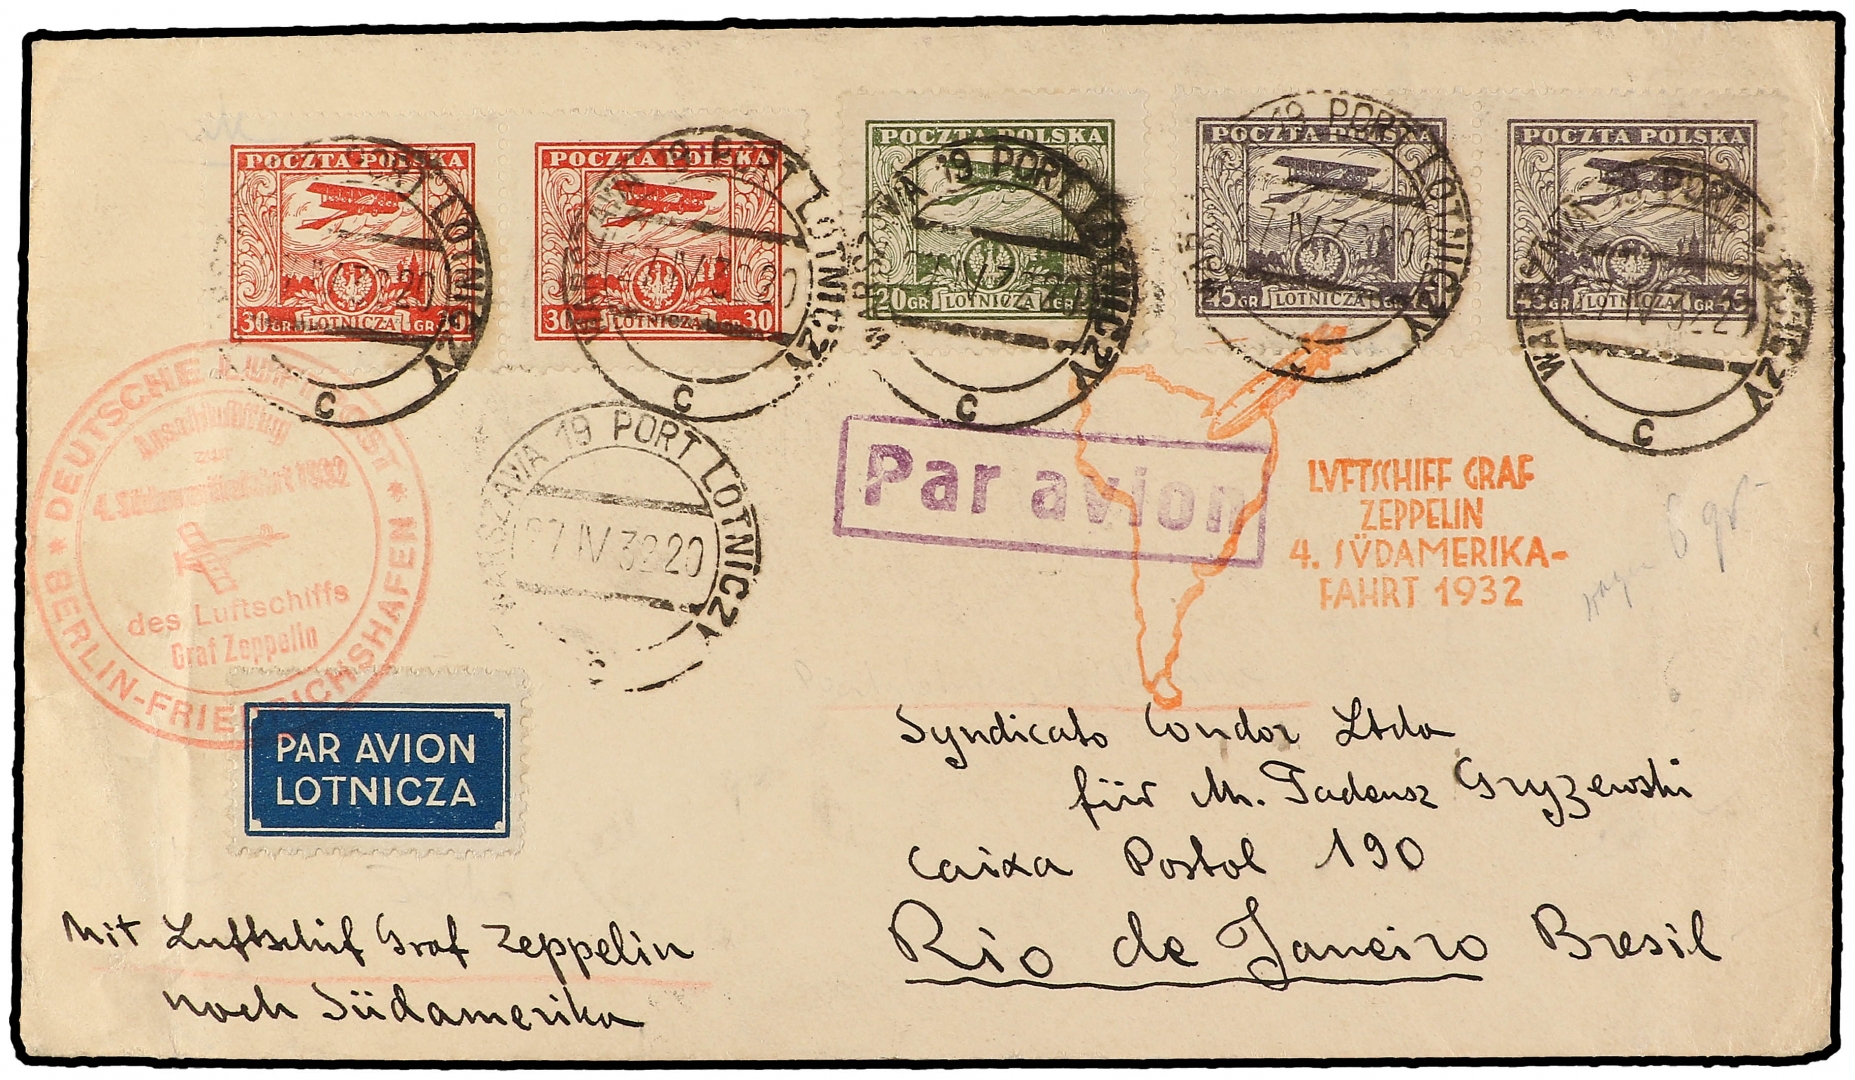 POCZTA POLSKA
30 GR LOTNICZA GR 30
POCZTA POLSKA
30 LOTNICZA GR 30
POCZTA POLSKA
20 GR LOTNICZA GR
POCZTA POLSKA
45 GR LOTNICZA
POCZTA POLSKA
45 GR LOTNICZA GR 45
PORT LOTNICZY
C
19 PORT LOTNICZY
C
WARSZAWA 19 PORT LOTNICZY
C
19 PORT LOTNICZY
7 IV 32 20
WARSZAWA 19 PORT LOTNICZY
C
WARSZAWA 19 PORT LOTNICZY
7 IV 32 20
DEUTSCHE LUFTPOST
Anschlußflug
zur
4. Südamerikafahrt 1932
des Luftschiffs
Graf Zeppelin
* BERLIN-FRIEDRICHSHAFEN *
Par avion
LUFTSCHIFF GRAF
ZEPPELIN
4. SÜDAMERIKA-
FAHRT 1932
6 gr
PAR AVION
LOTNICZA
Syndicato Condor Ltda
für M. Tadeusz Gryzewski
Caixa Postal 190
Rio de Janeiro Bresil
Mit Luftschif Graf Zeppelin
nach Südamerika